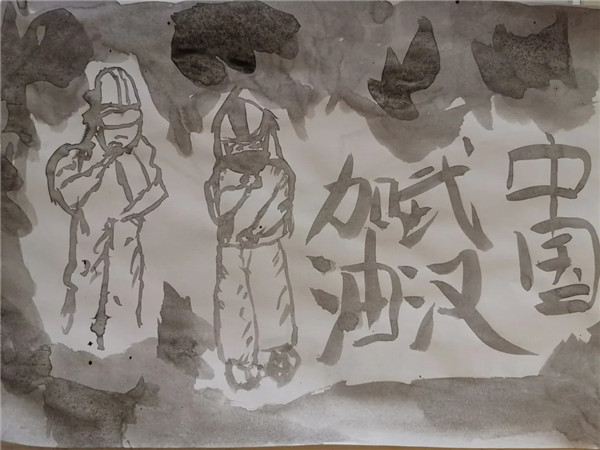 中国
武汉
加油